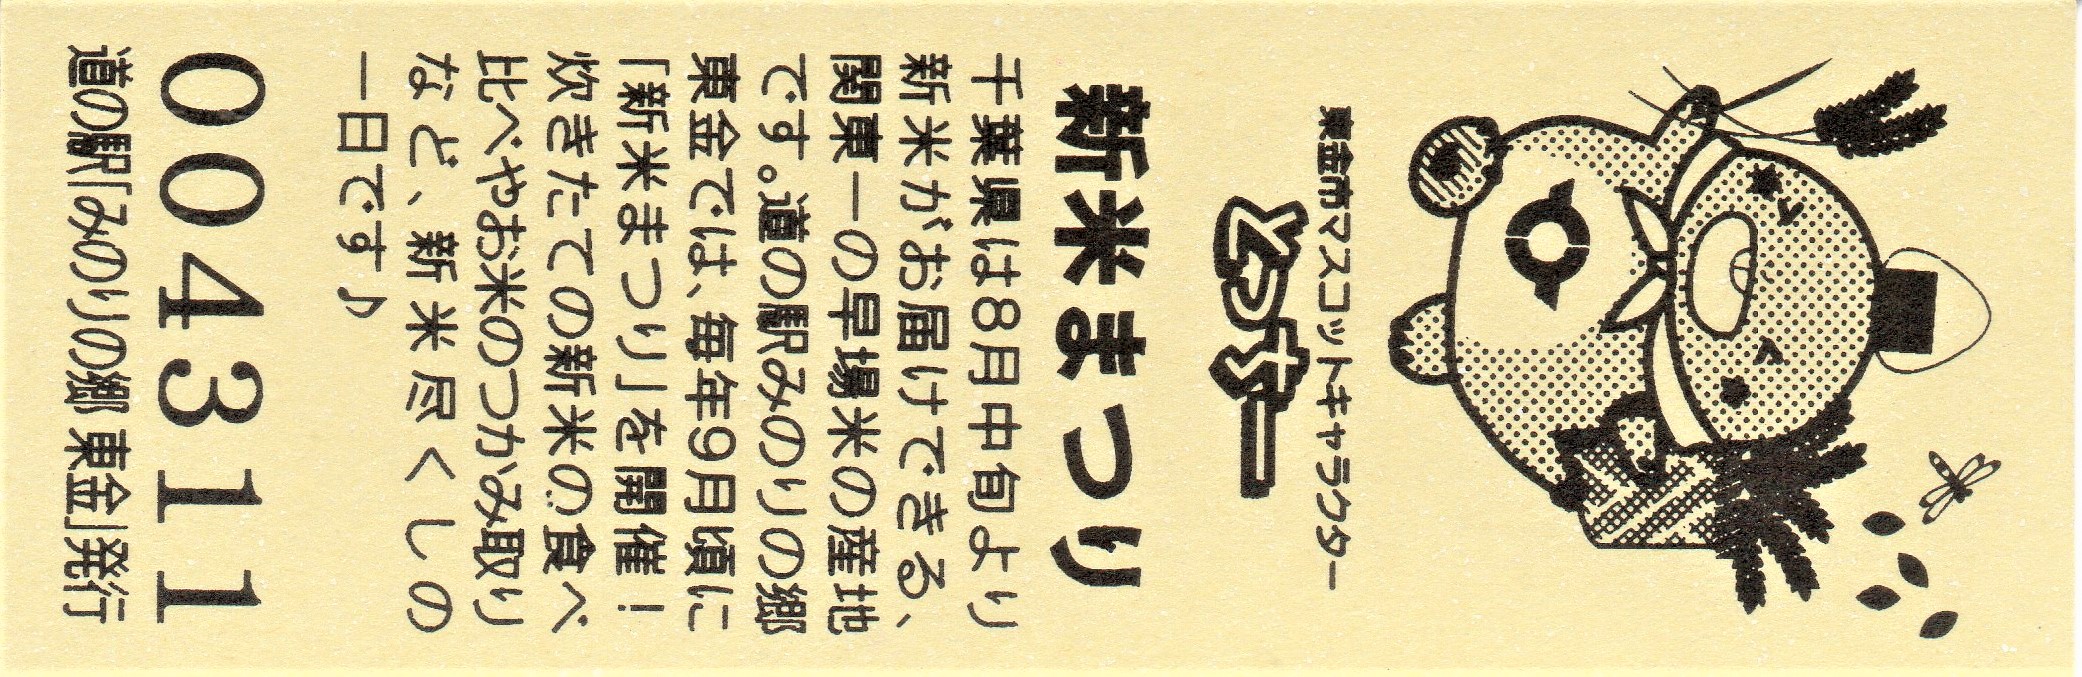 東金市マスコットキャラクター
とっちー
新米まつり
千葉県は8月中旬より
新米がお届けできる、
関東一の早場米の産地
です。道の駅みのりの郷
東金では、毎年9月頃に
「新米まつり」を開催!
炊きたての新米の食べ
比べやお米のつかみ取り
など、新米尽くしの
一日です♪
004311
道の駅「みのりの郷 東金」発行